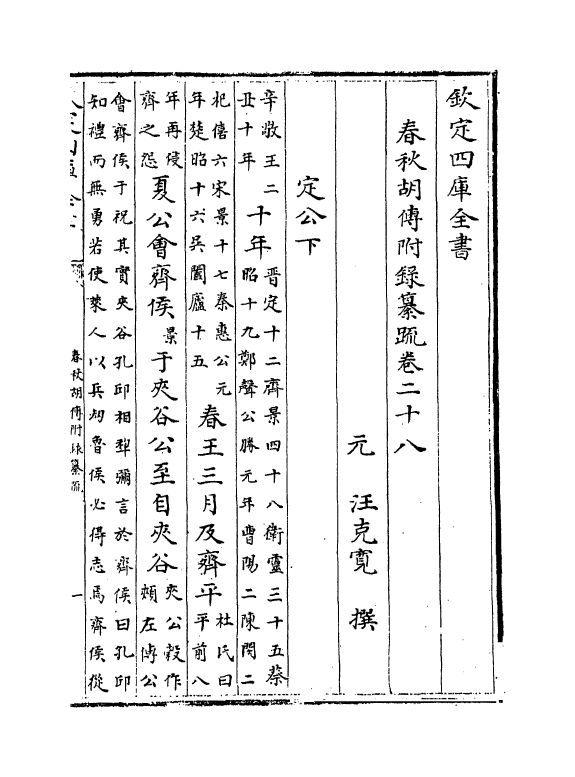 欽定四庫全書
春秋胡傳附錄纂疏卷二十八
元 汪克寛 撰
定公下
辛敬王二
丑十年
十年
晋定十二齊景四十八衛靈三十五蔡
昭十九鄭聲公勝元年曹陽二陳閔二
杞僖六宋景十七秦惠公元
年楚昭十六吳闔廬十五
春王三月及齊平
杜氏曰
平前八
年再侵
齊之怨
夏公會齊侯
景
于夾谷公至自夾谷
夾公穀作
頰左傳公
會齊侯于祝其實夾谷孔邱相犂彌言於齊侯曰孔邱
知禮而無勇若使萊人以兵刼魯侯必得志焉齊侯從
春秋胡傳附錄纂疏
一